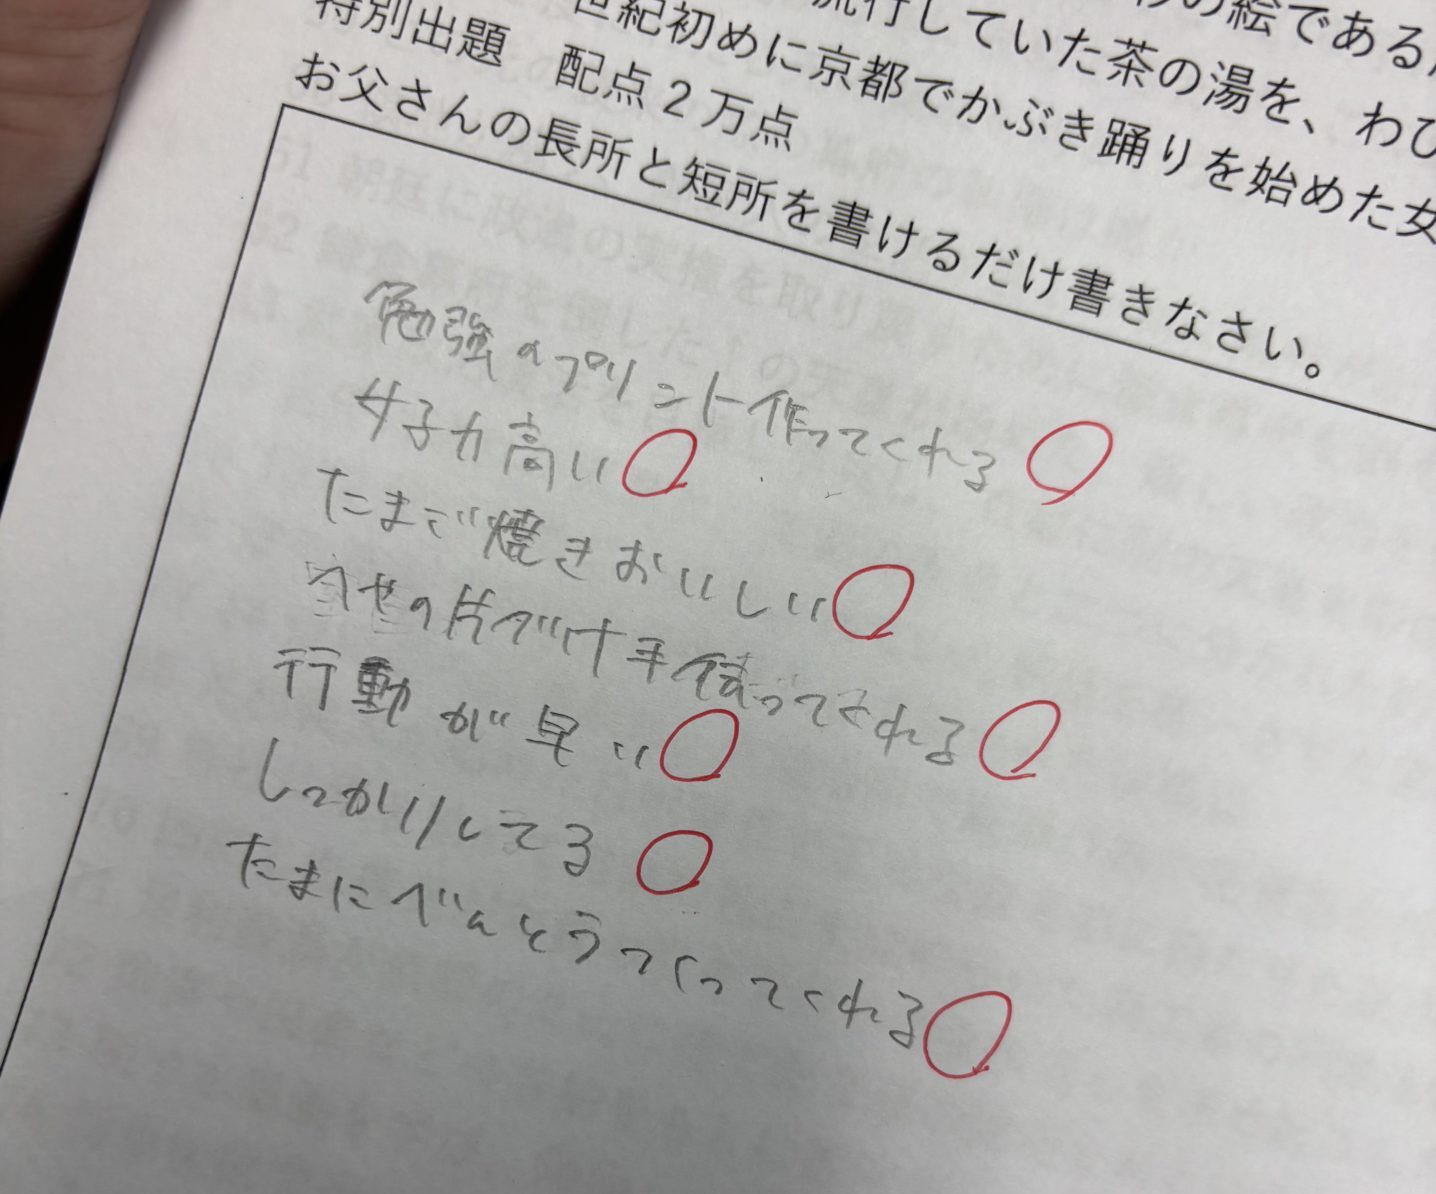 の絵である
流行していた茶の湯を、わび
世紀初めに京都でかぶき踊りを始めた女
特別出題 配点2万点
お父さんの長所と短所を書けるだけ書きなさい。
勉強のプリント作ってくれる
女子力高い
たまご焼きおいしい
の片づけ手伝ってくれる
行動が早い
しっかりしてる
たまにべんとうつくってくれる